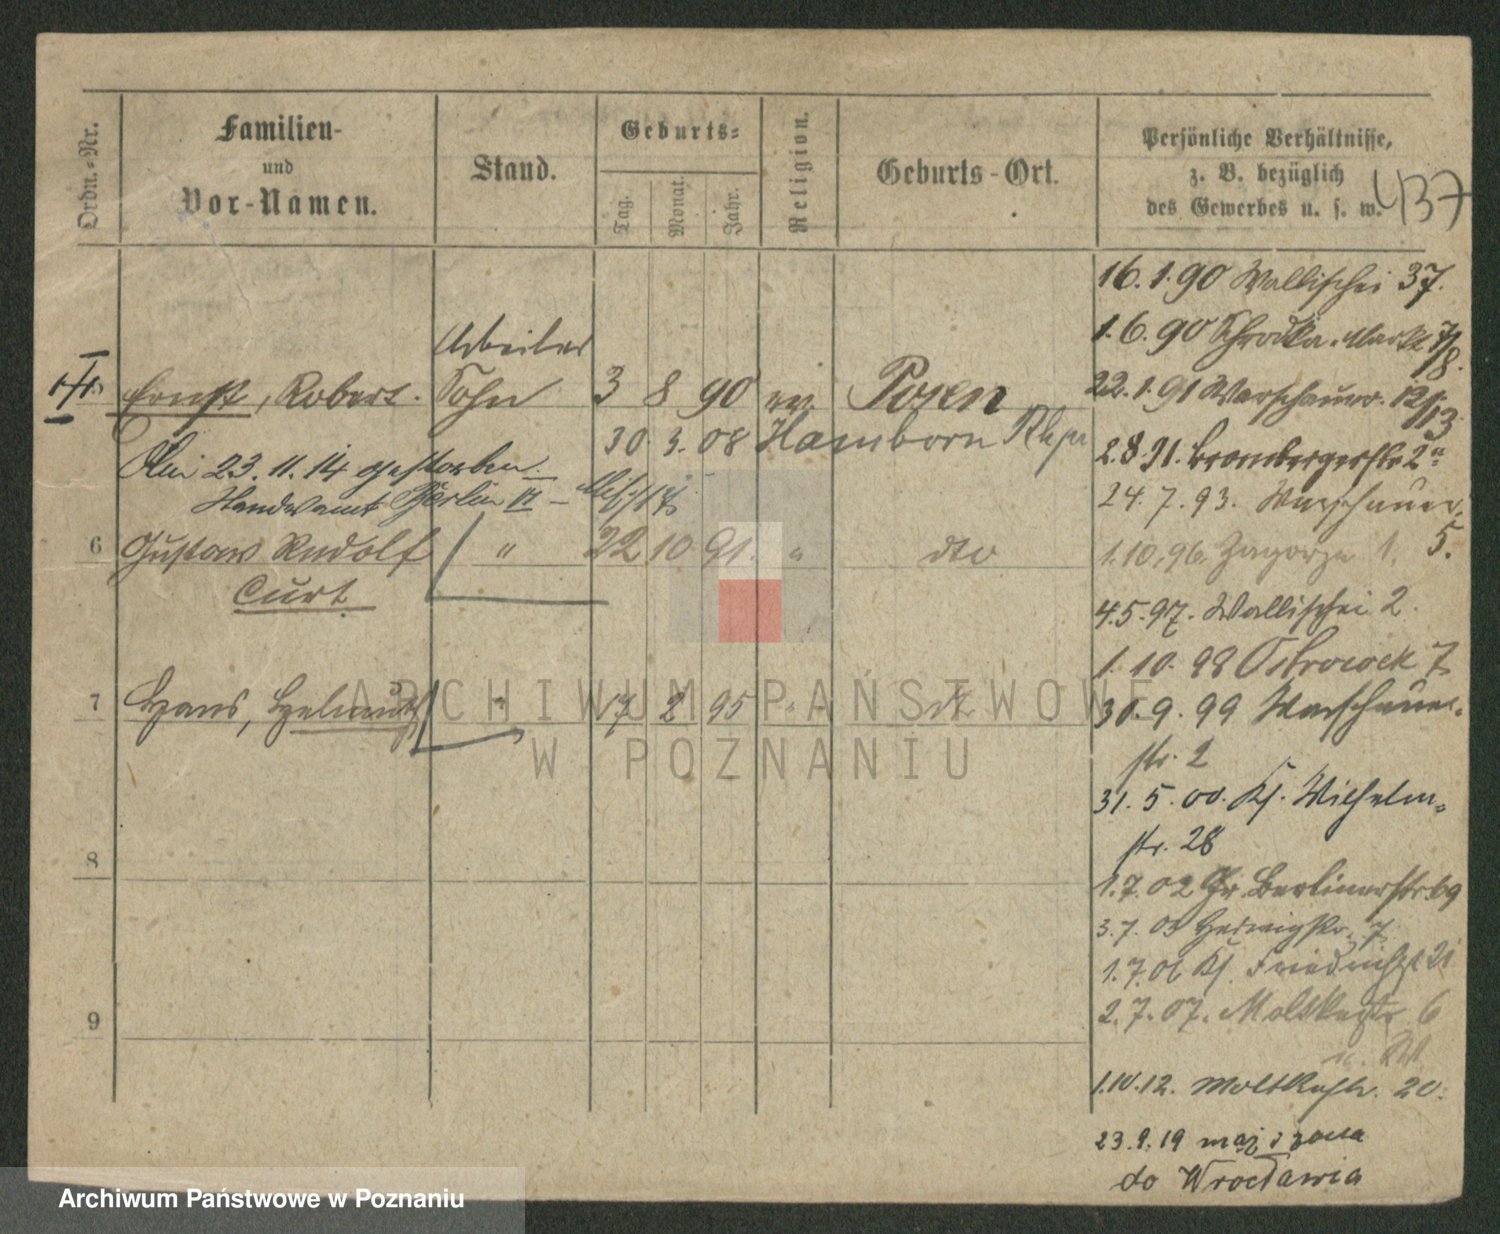 Ordn.-Nr.
Familien-
und
Vor-Namen.
Stand.
Geburts-
Tag.
Monat.
Jahr.
Religion.
Geburts-Ort.
Persönliche Verhältnisse,
z. B. bezüglich
des Gewerbes u. s. w.
437
Arbeiter
Ernst, Robert. Sohn 3 8 90 ev. Posen
30. 3. 08 Hamborn
23. 11. 14 gestorben
Standesamt Berlin VI
6 Gustav Rudolf " 22 10 91. " dto
Curt
7 Hans, Helmuth " 17 2 95 " dto
8
9
16. 1. 90 Wallischei 37.
1. 6. 90 Schrodka-Markt 7/8.
22. 1. 91 Warschauer. 12/13
2. 8. 91. Brombergerstr 2a
24. 7. 93. Warschauer.
5.
1. 10. 96. Zagorze 1.
4. 5. 97. Wallischei 2.
1. 10. 98 Ostrowek 7.
30. 9. 99 Warschauer-
str. 2
31. 5. 00. Kl. Wilhelm-
str. 28
1. 7. 02 Gr. Berlinerstr 69
3. 7. 03 Hedwigstr. 7
1. 7. 06 Kl.
2. 7. 07. Moltkestr 6
1. 10. 12. Moltkestr. 20.
23. 9. 19 mąż i żona
do Wrocławia
ARCHIWUM PAŃSTWOWE
W POZNANIU
Archiwum Państwowe w Poznaniu